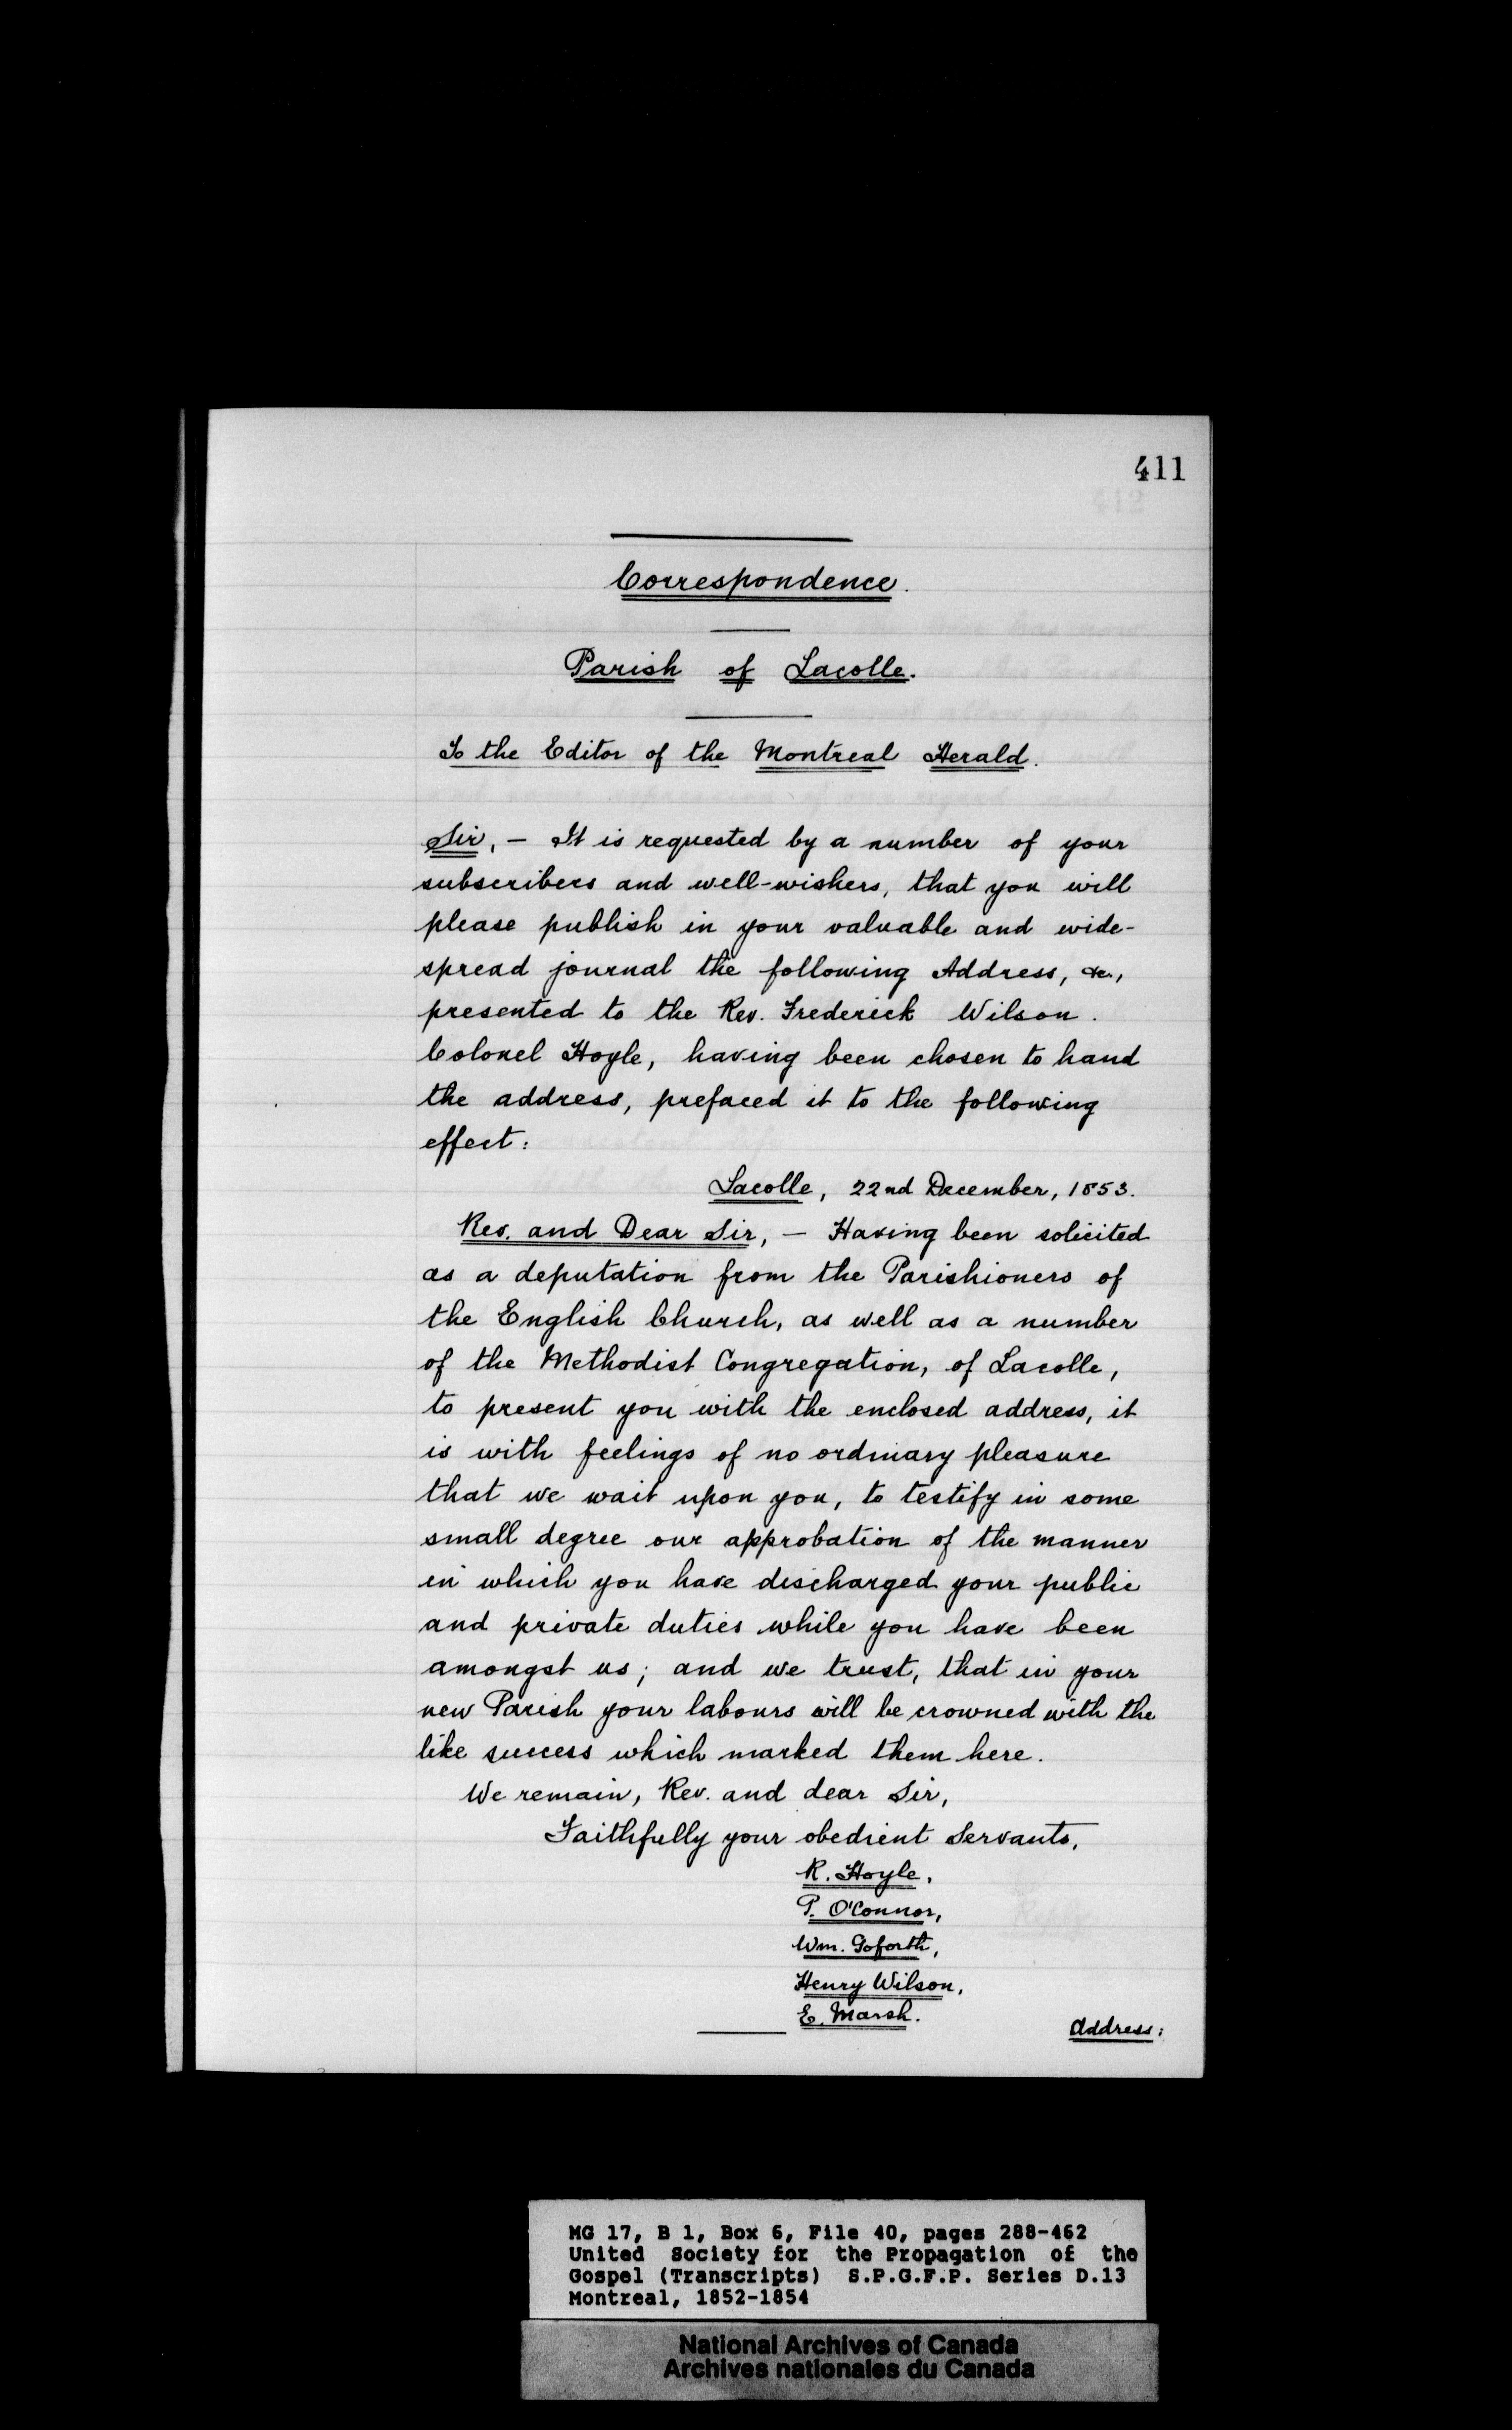 411
Correspondence.
Parish of Lacolle.
To the Editor of the Montreal Herald.
Sir, — It is requested by a number of your
subscribers and well-wishers, that you will
please publish in your valuable and wide-
spread journal the following Address, &c.,
presented to the Rev. Frederick Wilson.
Colonel Hoyle, having been chosen to hand
the address, prefaced it to the following
effect:
Lacolle, 22nd December, 1853.
Rev. and Dear Sir, — Having been solicited
as a deputation from the Parishioners of
the English Church, as well as a number
of the Methodist Congregation, of Lacolle,
to present you with the enclosed address, it
is with feelings of no ordinary pleasure
that we wait upon you, to testify in some
small degree our approbation of the manner
in which you have discharged your public
and private duties while you have been
amongst us; and we trust, that in your
new Parish your labours will be crowned with the
like success which marked them here.
We remain, Rev. and dear Sir,
Faithfully your obedient Servants,
R. Hoyle,
P. O'Connor,
Wm. Goforth,
Henry Wilson,
E. Marsh.
Address:
MG 17, B 1, Box 6, File 40, pages 288-462
United Society for the Propagation of the
Gospel (Transcripts) S.P.G.F.P. Series D.13
Montreal, 1852-1854
National Archives of Canada
Archives nationales du Canada